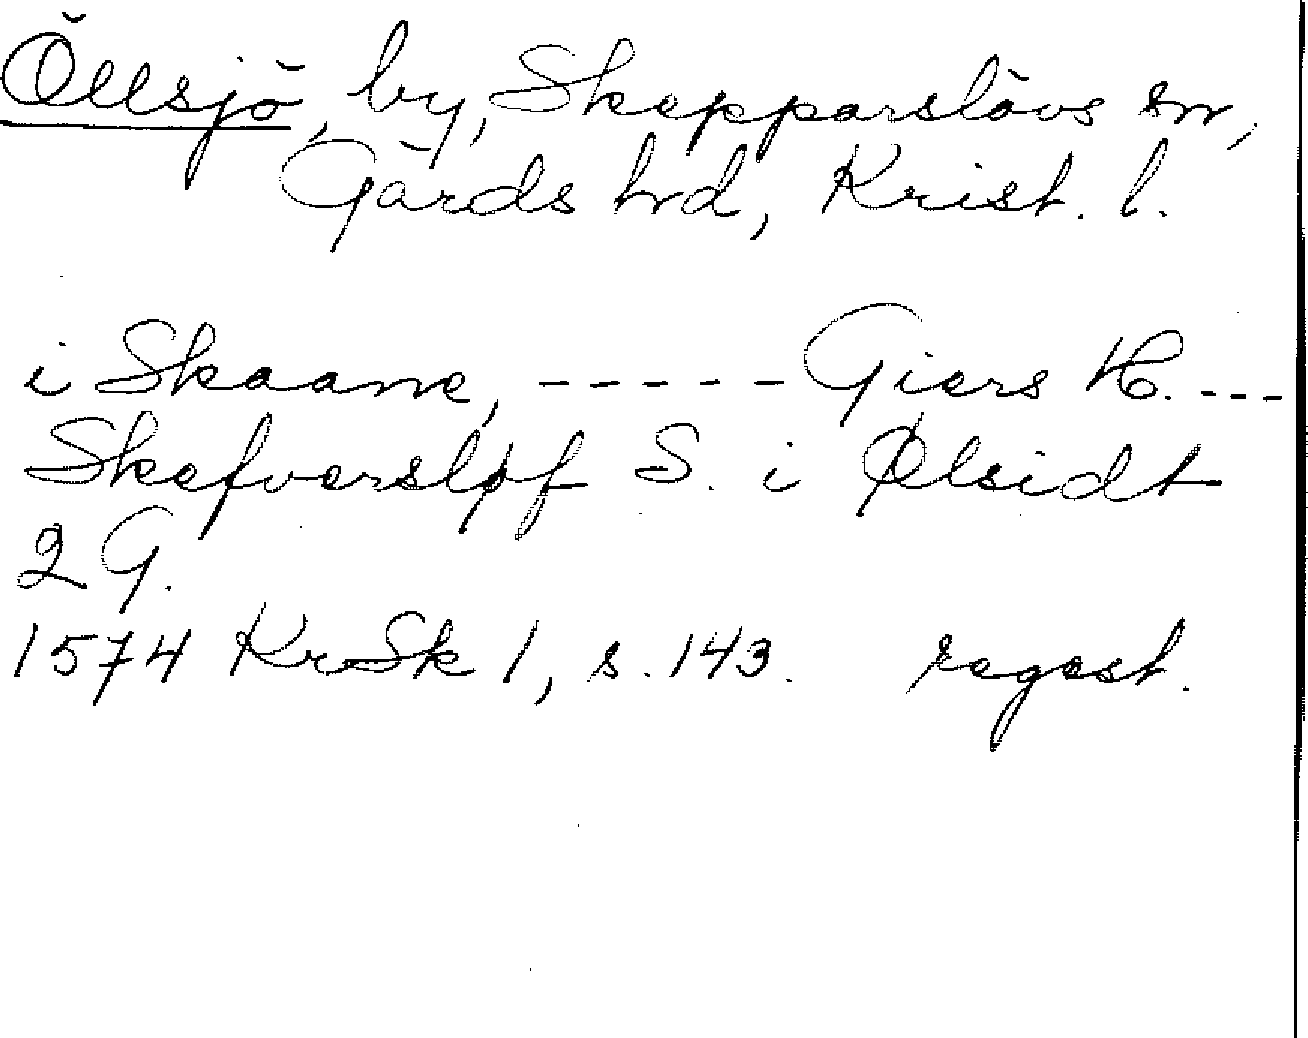 Öllsjö, by, Skepparslövs sn,
Gärds hrd, Krist. l.
i Skaane, ----- Giers H. ---
Skefversløf S. i Ølsidt
2 G.
1574 KrSk 1, s. 143. regest.